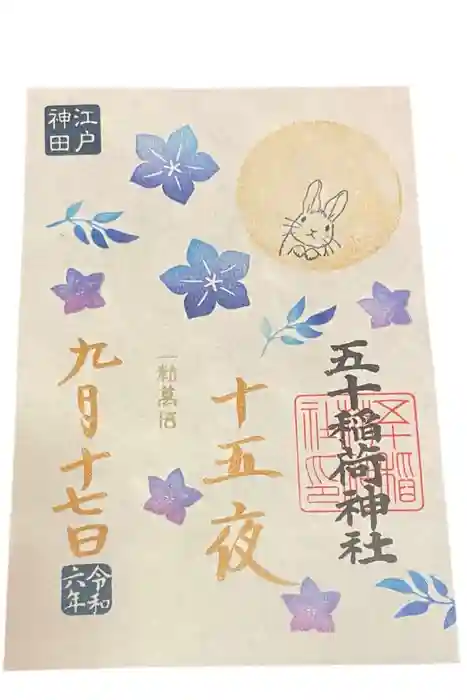 五十稲荷神社
十五夜
一粒萬倍
九月十七日
令和
六年
江戸
神田